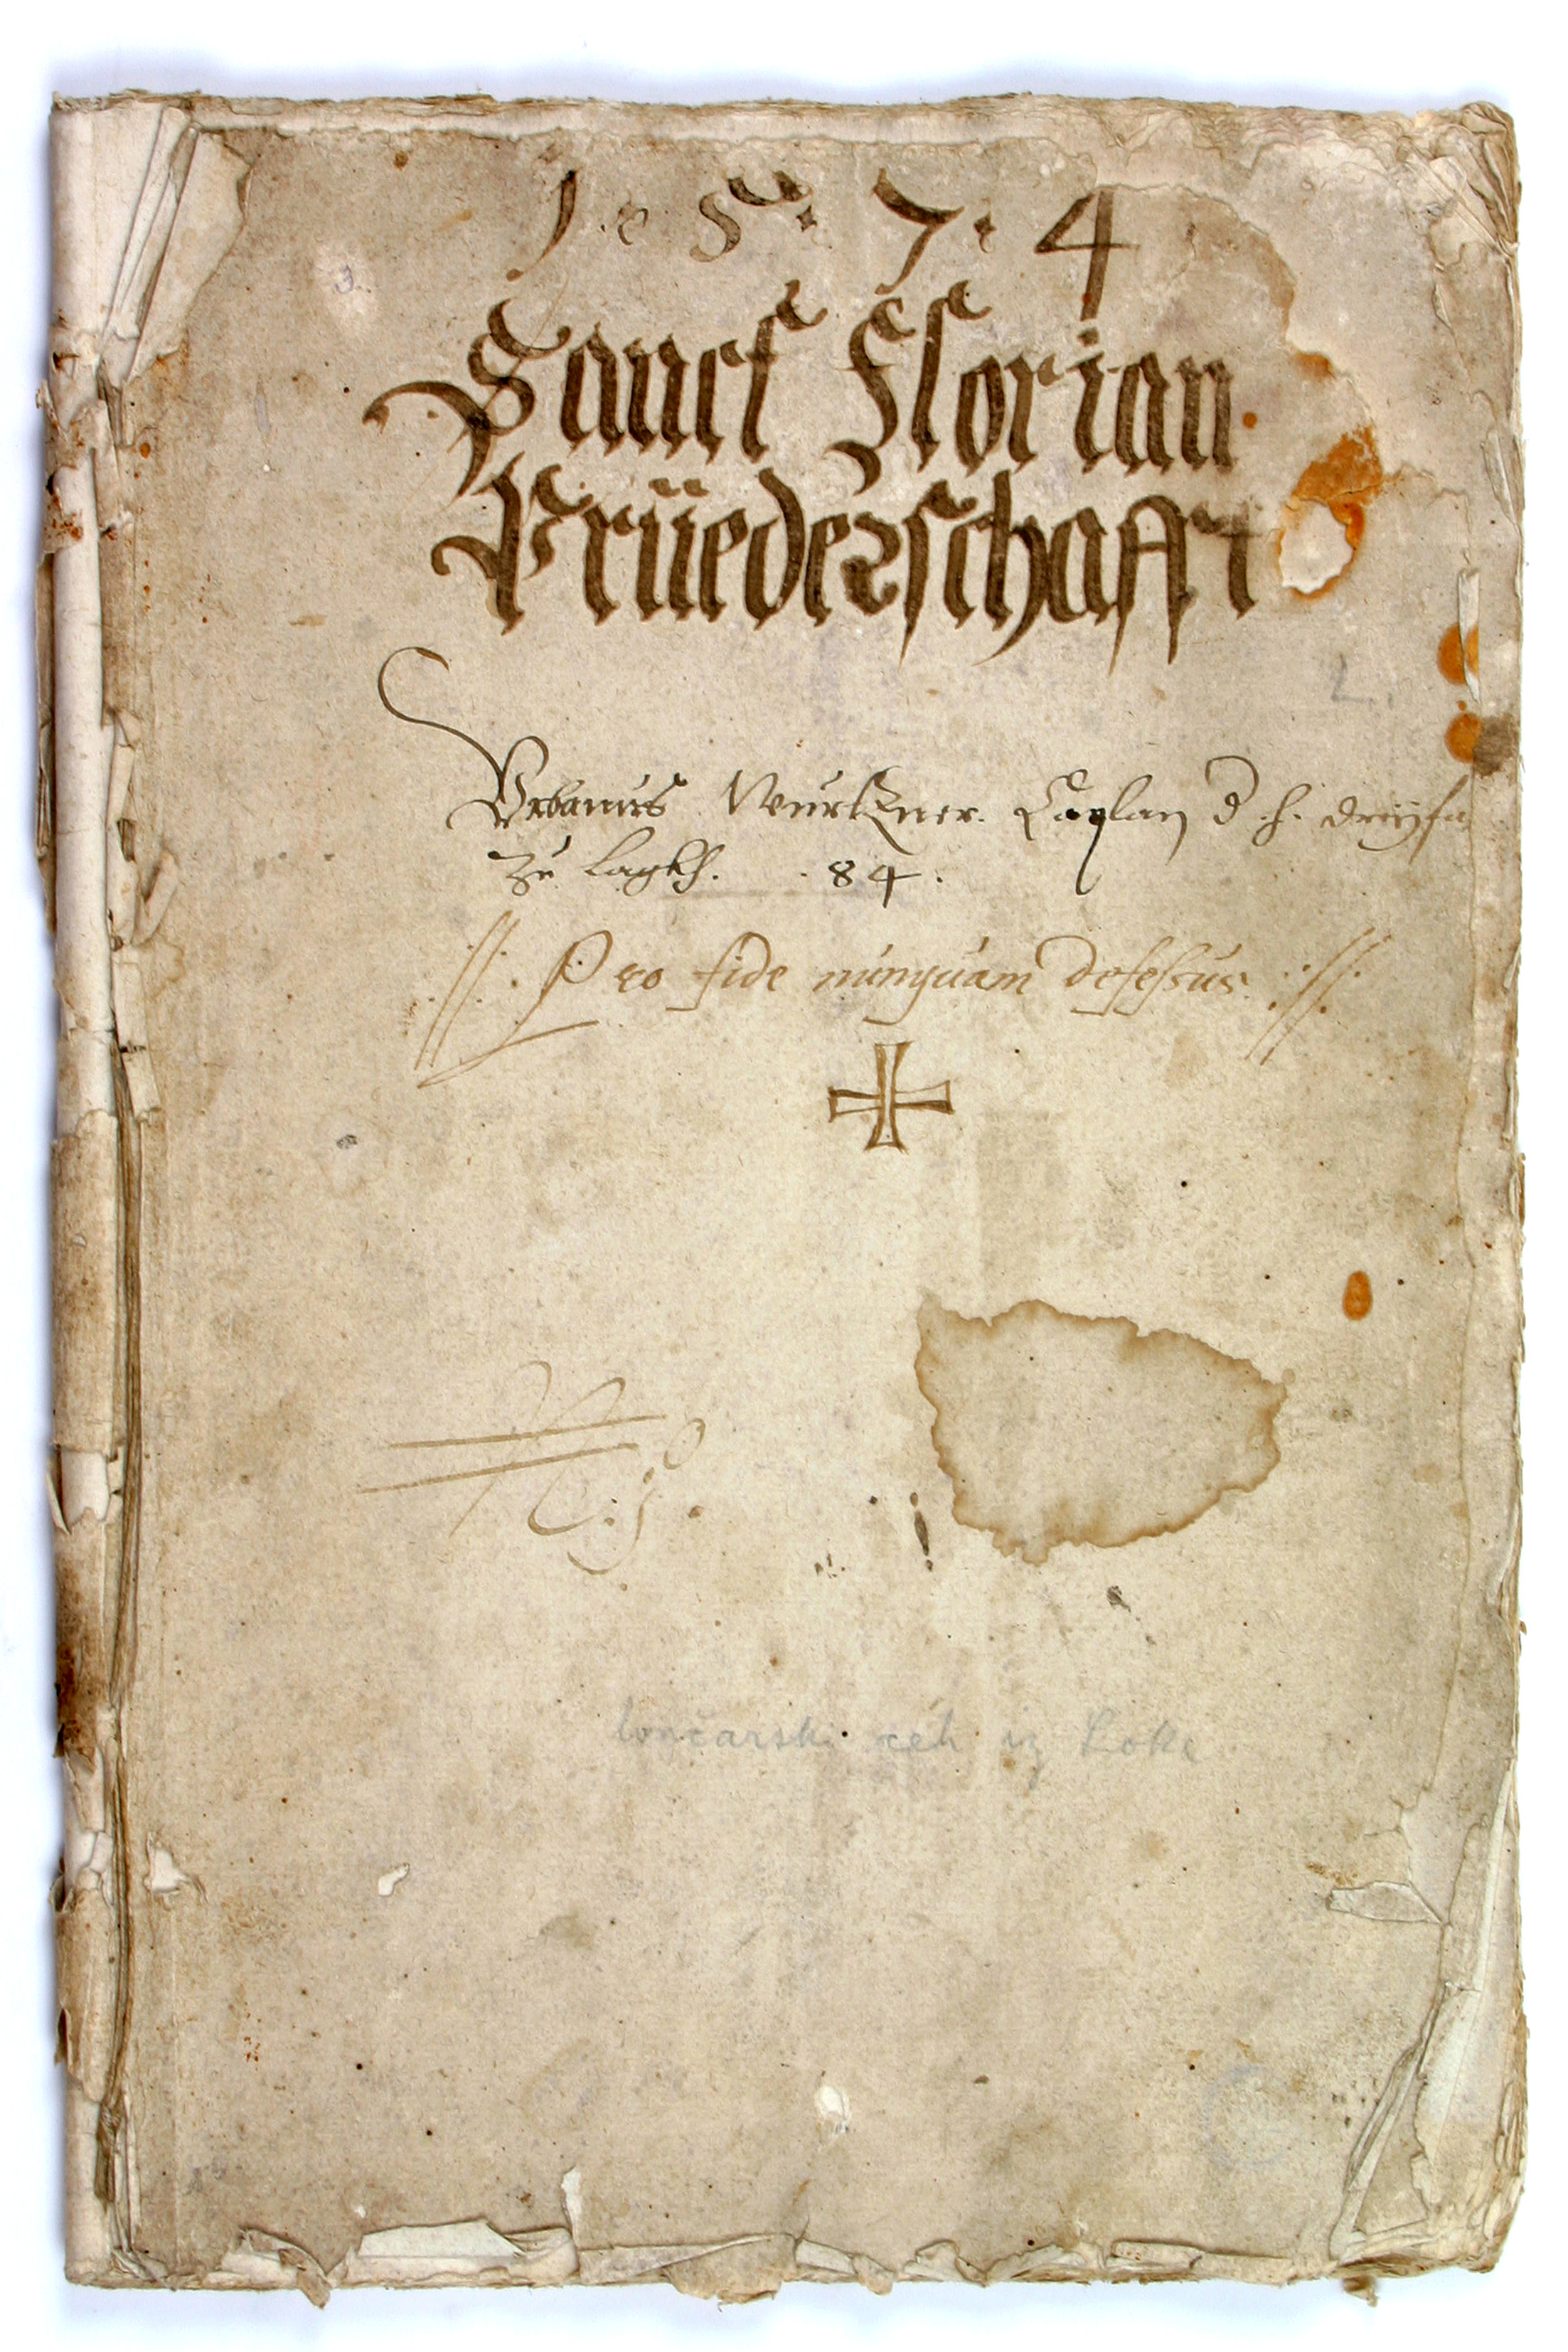 1 · 5 · 7 · 4
Sanct Florian
Prüederschafft
Vrbanus Wurtzner. Caplan d. h.
Zu Lagkh. · 84 ·
://: Pro fide nunquam defessus ://:
lončarski ceh iz Loke